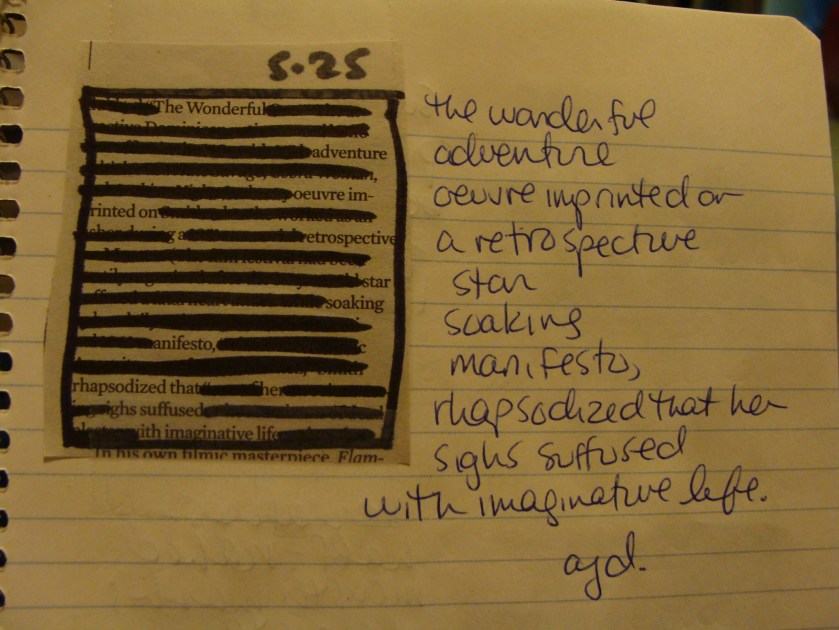 5.25
"The Wonderful
adventure
oeuvre im-
rinted on
a retrospective
star
soaking
anifesto,
rhapsodized that her
sighs suffused
with imaginative life
In his own filmic masterpiece, Flam-
the wonderful
adventure
oeuvre imprinted on
a retrospective
star
soaking
manifesto,
rhapsodized that her
sighs suffused
with imaginative life.
ayd.